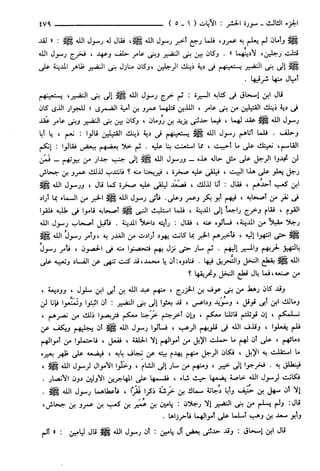 الجزء الثالث - سورة الحشر: الآيات (١ - ٥) ٤٧٩
ﷺ وأمان لم يعلم به عمرو، فلما رجع أخبر رسول الله ﷺ، فقال له رسول الله ﷺ: «لقد
قتلت رجلين، لأدينهما». وكان بين بني النضير وبني عامر حلف وعهد، فخرج رسول الله
ﷺ إلى بني النضير يستعينهم في دية ذينك الرجلين، وكان منازل بني النضير ظاهر المدينة على
أميال منها شرقيها.
قال ابن إسحاق في كتابه السيرة: ثم خرج رسول الله ﷺ إلى بني النضير، يستعينهم
في دية ذينك القتيلين من بني عامر، اللذين قتلهما عمرو بن أمية الضمري؛ للجوار الذي كان
رسول الله ﷺ عقد لهما، فيما حدثني يزيد بن رُومان، وكان بين بني النضير وبني عامر عَقد
وحلف. فلما أتاهم رسول الله ﷺ يستعينهم في دية ذينك القتيلين قالوا: نعم، يا أبا
القاسم، نعينك على ما أحببت، مما استعنت بنا عليه. ثم خلا بعضهم ببعض فقالوا: إنكم
لن تجدوا الرجل على مثل حاله هذه - ورسول الله ﷺ إلى جنب جدار من بيوتهم - فَمَن
رجل يعلو على هذا البيت، فيلقي عليه صخرة، فيريحنا منه؟ فانتدب لذلك عمرو بن جحاش
ابن كعب أحدهم، فقال: أنا لذلك، فصَعَد ليلقي عليه صخرة كما قال، ورسول الله ﷺ
في نفر من أصحابه، فيهم أبو بكر وعمر وعلي. فأتى رسول الله ﷺ الخبر من السماء بما أراد
القوم، فقام وخرج راجعاً إلى المدينة، فلما استلبث النبيَّ ﷺ أصحابه قاموا في طلبه فلقوا
رجلا مقبلاً من المدينة، فسألوه عنه، فقال: رأيته داخلاً المدينة. فأقبل أصحاب رسول الله
ﷺ حتى انتهوا إليه، فأخبرهم الخبر بما كانت يهود أرادت من الغدر به، وأمر رسولُ الله ﷺ
بالتهيؤ لحربهم والمسير إليهم. ثم سار حتى نزل بهم فتحصنوا منه في الحصون، فأمر رسولُ
الله ﷺ بقطع النخل والتَّحريق فيها. فنادوه: أن يا محمد، قد كنت تنهى عن الفساد وتعيبه على
من صنعه، فما بال قطع النخل وتحريقها؟
وقد كان رهط من بني عوف بن الخزرج، منهم عبد الله بن أبي ابن سلول، ووديعة،
ومالك ابن أبي قوقل، وسُوَيد وداعس، قد بعثوا إلى بني النضير: أن اثبتوا وتمنَّعوا فإنا لن
نسلمكم، إن قوتلتم قاتلنا معكم، وإن أخرجتم خرَجنا معكم فتربصوا ذلك من نصرهم،
فلم يفعلوا، وقذف الله في قلوبهم الرعب، فسألوا رسول الله ﷺ أن يجليهم ويكف عن
دمائهم، على أن لهم ما حملت الإبل من أموالهم إلا الحلقة، ففعل، فاحتملوا من أموالهم
ما استقلت به الإبل، فكان الرجل منهم يهدم بيته عن نجاف بابه، فيضعه على ظهر بعيره
فينطلق به. فخرجوا إلى خيبر، ومنهم من سار إلى الشام، وخلَّوا الأموال لرسول الله ﷺ،
فكانت لرسول الله خاصة يضعها حيث شاء، فقسمها على المهاجرين الأولين دون الأنصار.
إلا أن سهل بن حُنَيف وأبا دُجانة سماك بن خَرشَة ذكرا فَقْرًا، فأعطاهما رسول الله ﷺ.
قال: ولم يسلم من بني النضير إلا رجلان: يامين بن عُمَير بن كعب بن عمرو بن جحاش،
وأبو سعد بن وهب أسلما على أموالهما فأحرزاها.
قال ابن إسحاق: وقد حدثني بعض آل يامين: أن رسول الله ﷺ قال ليامين: «ألم